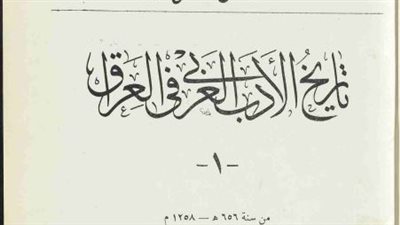 تاريخ الأدب العربي في العراق
-١-
من سنة ٦٥٦ هـ — ١٢٥٨ م